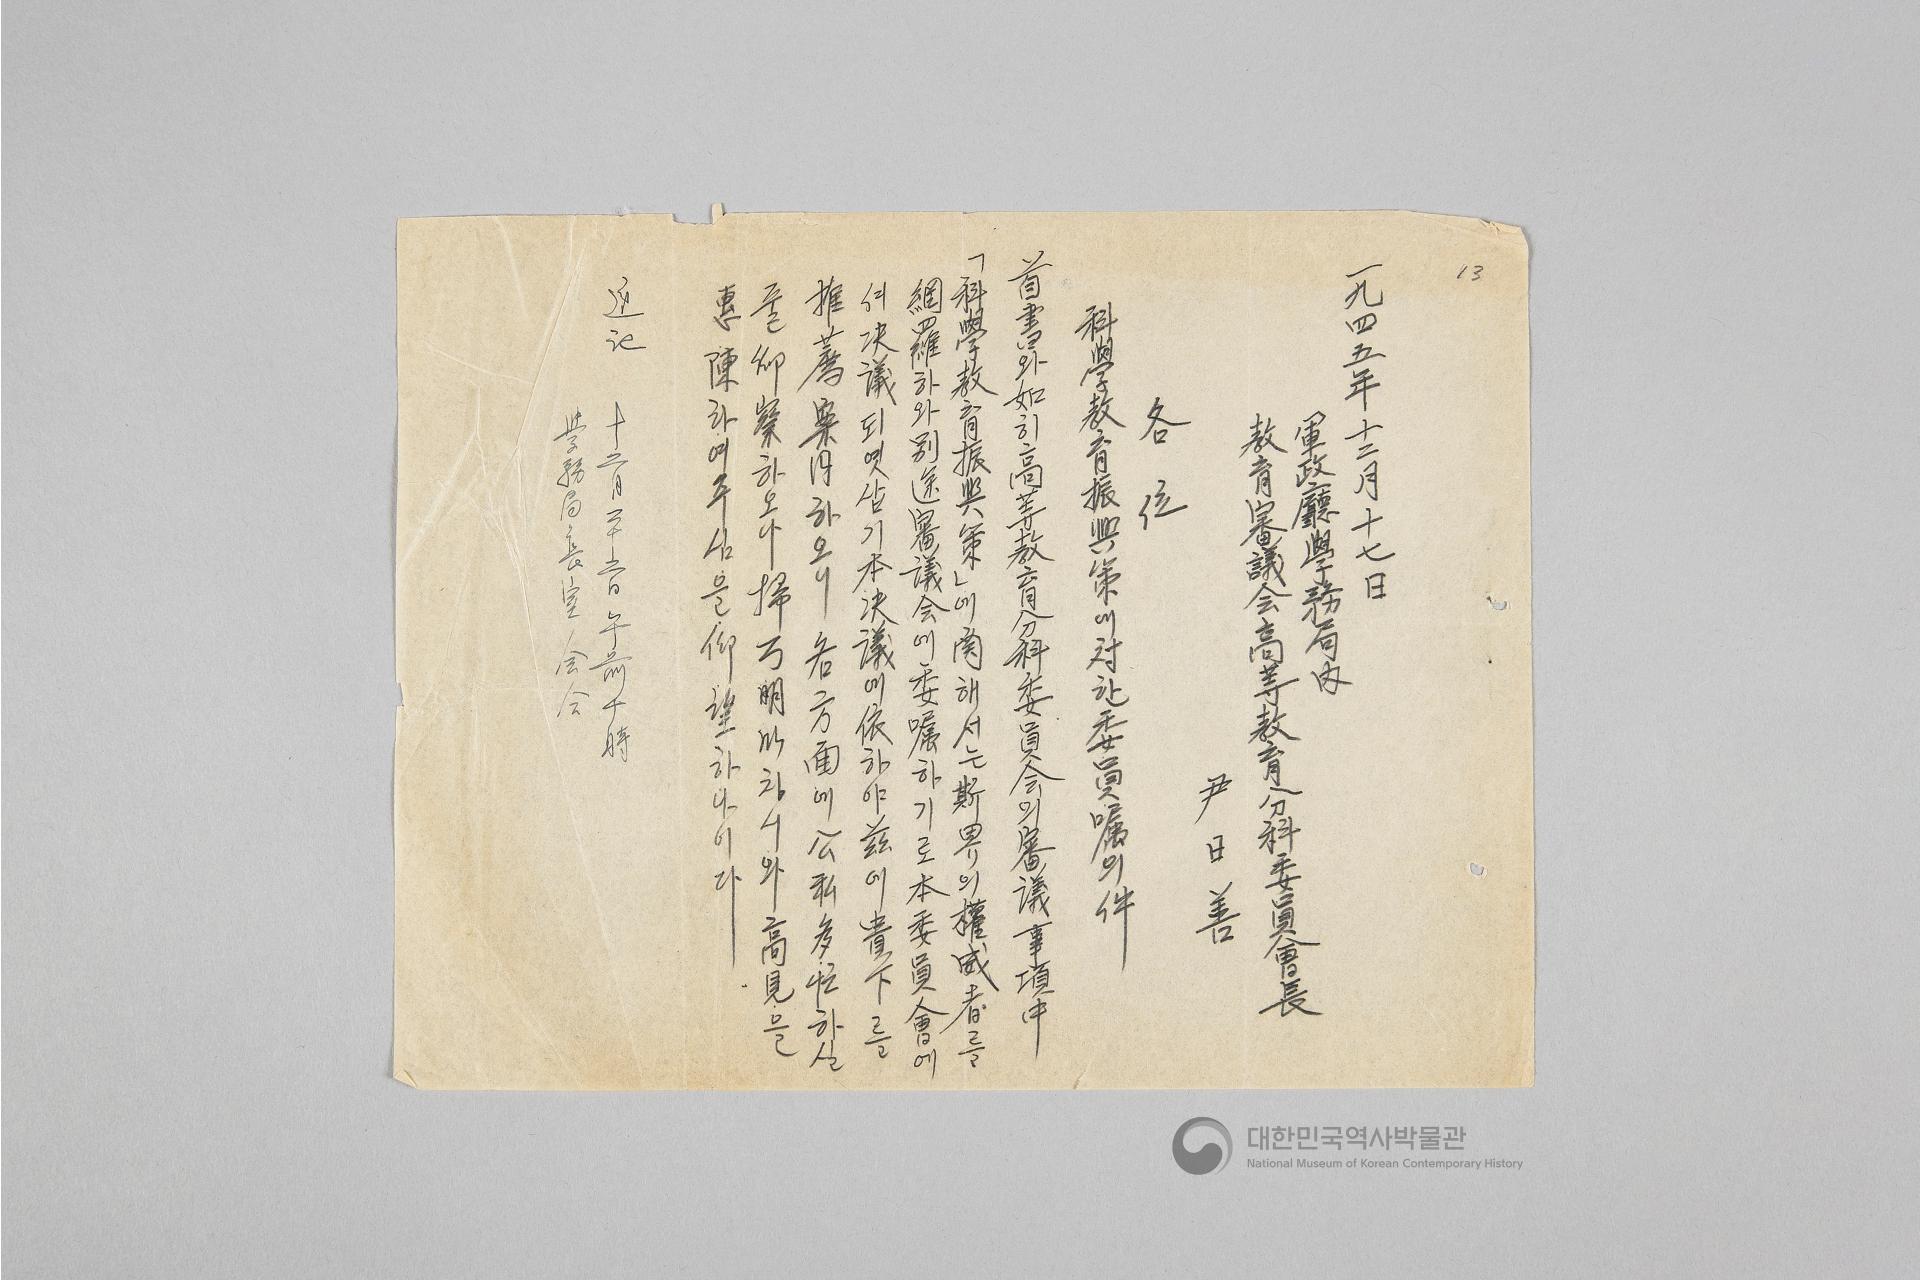 13
一九四五年十二月十七日
軍政廳學務局內
教育審議会高等教育分科委員會長
尹日善
各位
科學教育振興策에対한委員囑의件
首書와如히高等教育分科委員会의審議事項中
「科學教育振興策」에関해서는斯界의權威者를
網羅하와別途審議会에委囑하기로本委員會에
서决議되엿삽기本决議에依하야玆에貴下를
推薦案得하오니各方面에公私多忙하실
줄仰察하오나掃万明此하시와高見을
惠陳하여주심을仰望하나이다
追記
午前十時
学務局長室会合
대한민국역사박물관
National Museum of Korean Contemporary History